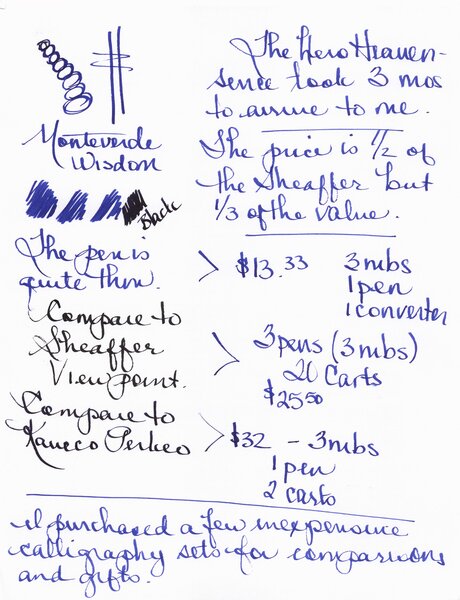 Monteverde
Wisdom
Black
The Hero Heaven-
sence took 3 mos
to arrive to me.
The price is 1/2 of
the Sheaffer but
1/3 of the value.
The pen is
quite thin.
> $13.33 3 nibs
1 pen
1 converter
Compare to
Sheaffer
Viewpoint.
> 3 pens (3 nibs)
20 Carts
$25.50
Compare to
Kaweco Perkeo
> $32 - 3 nibs
1 pen
2 carts
I purchased a few inexpensive
calligraphy sets for comparisons
and gifts.